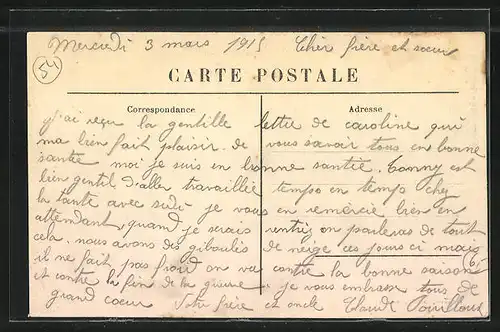 Mercredi 3 mars 1915 Cher frère et soeur
54
CARTE POSTALE
Correspondance
Adresse
j'ai reçu la gentille lettre de caroline qui
ma bien fait plaisir de vous savoir tous en bonne
santie moi je suis en bonne santie. Tonny est
bien gentil d'aller travaillie tempo en tempo chez
la tante avec je vous en remercie bien en
attendant quand je serais rentriz on parleras de tout
cela. nous avons des giboulis de neige ces jours ci mais
il ne fait pas froid on va contre la bonne saison
et contre la fin de la guerre. je vous embrasse tous de
grand coeur Votre frère et oncle Claude